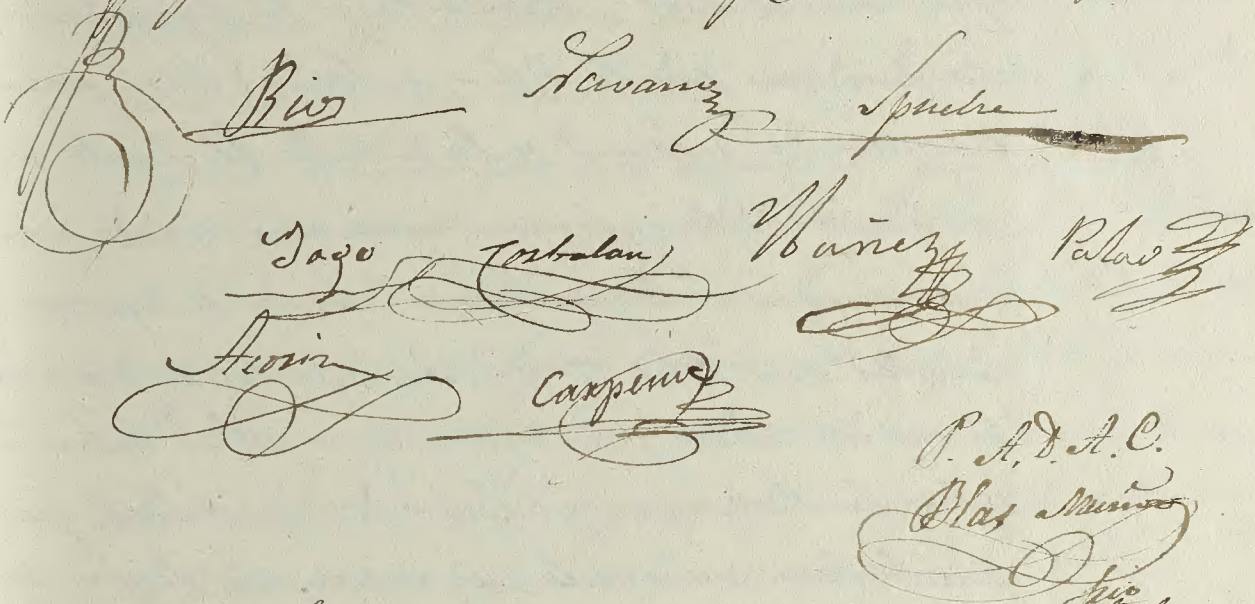 Rios Navarro Spuche
Yago Corbalan Ybañez Palao
Azorin Carpena
P. A. D. A. C.
Blas Muñoz
Srio